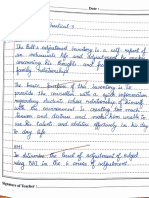 Date :
Practical - 
The Bell's adjustment inventory is a self report of
an individuals life and adjustment
concerning his thoughts and
family relationships.
The basic function of this inventory is to
provide the counsellor with a quick information
regarding student whose relationship of himself
with the environment has not been caused
tension and distress and make him unable to
use his talent and abilities effectively in his
day to day life
AIM
To determine the level of adjustment of subject
using BAI in the 4 areas of adjustment.
Signature of Teacher :